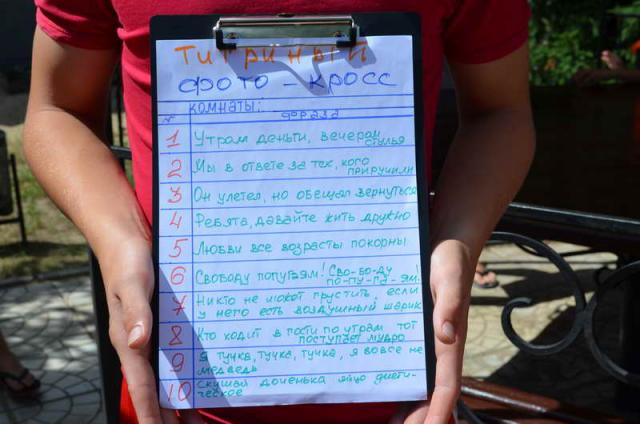 Титриный
фото - кросс
комнаты:
№ фраза
1 Утром деньги, вечером
стулья
2 Мы в ответе за тех, кого
приручили
3 Он улетел, но обещал вернуться
4 Ребята, давайте жить дружно
5 Любви все возрасты покорны
6 Свободу попугаям! Сво-бо-ду
по-пу-га-ям!
7 Никто не может грустить, если
у него есть воздушный шарик
8 Кто ходит в гости по утрам тот
поступает мудро
9 Я тучка, тучка, тучка, я вовсе не
медведь
10 Скушай доченька яйцо диети-
ческое